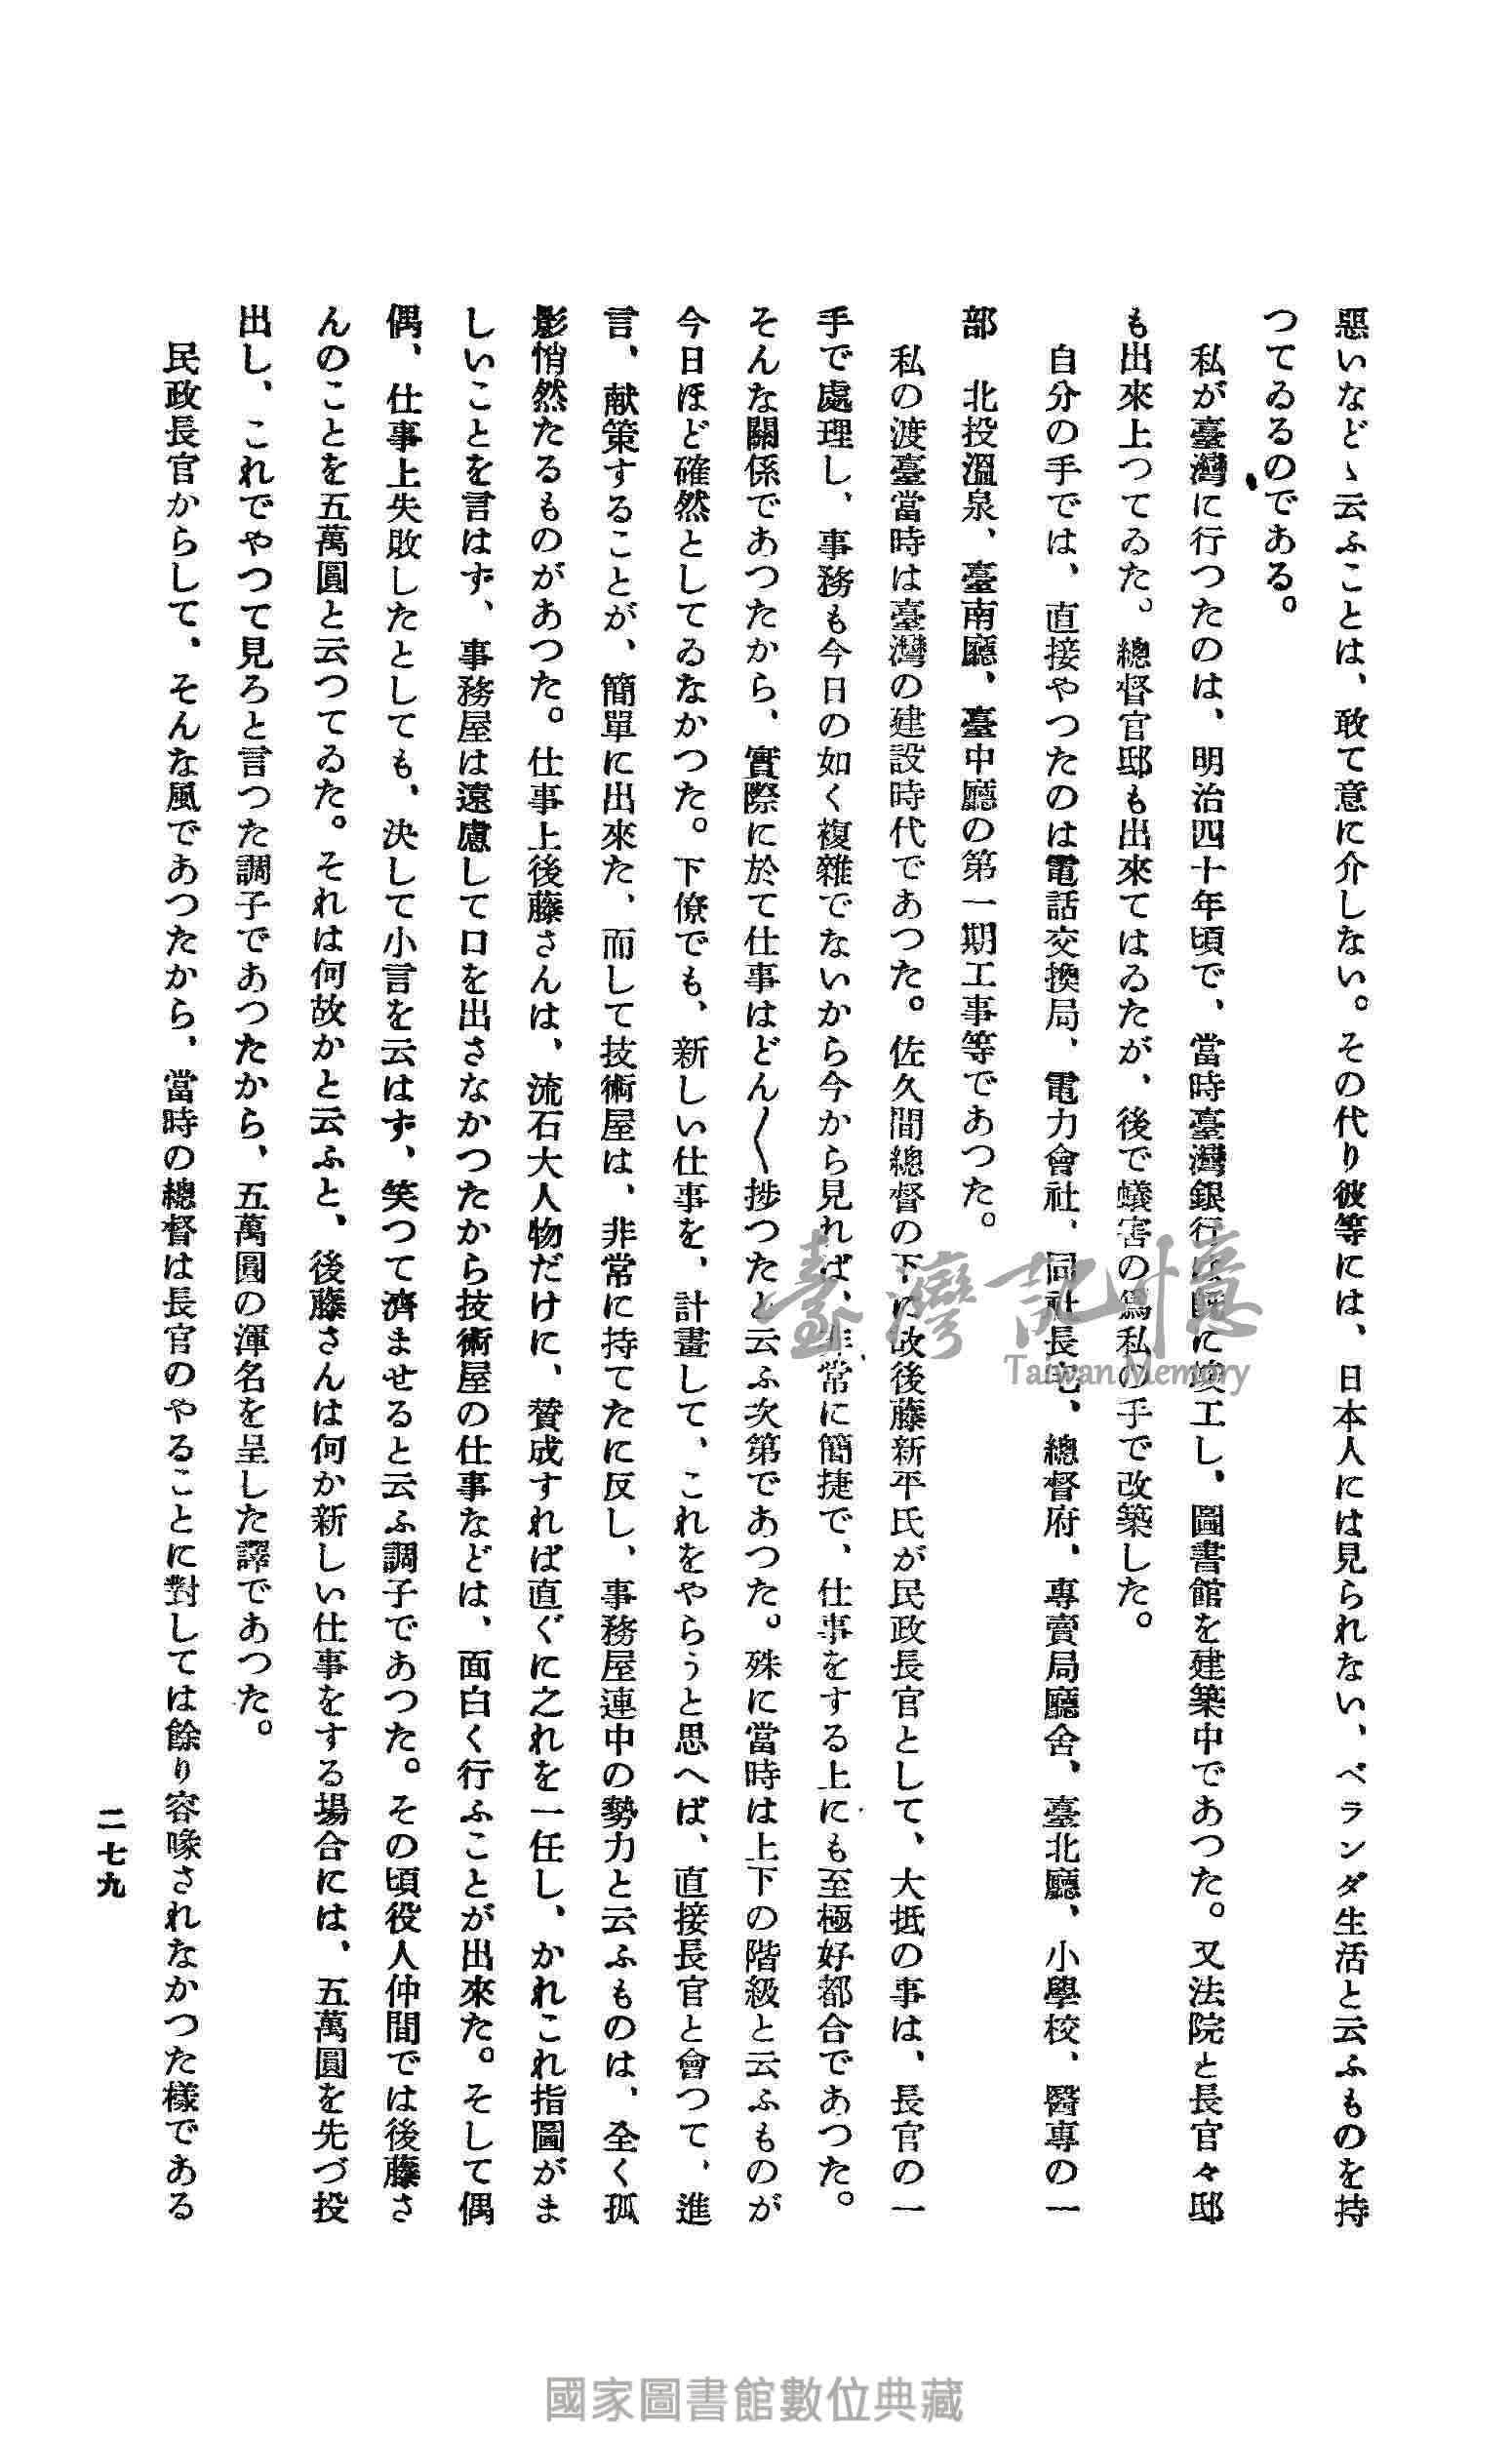 惡いなどゝ云ふことは、敢て意に介しない。その代り彼等には、日本人には見られない、ベランダ生活と云ふものを持
つてゐるのである。
私が臺灣に行つたのは、明治四十年頃で、當時臺灣銀行は既に竣工し、圖書館を建築中であつた。又法院と長官々邸
も出來上つてゐた。總督官邸も出來てはゐたが、後で蟻害の爲私の手で改築した。
自分の手では、直接やつたのは電話交換局、電力會社、同社長宅、總督府、專賣局廳舍、臺北廳、小學校、醫專の一
部 北投溫泉、臺南廳、臺中廳の第一期工事等であつた。
私の渡臺當時は臺灣の建設時代であつた。佐久間總督の下に故後藤新平氏が民政長官として、大抵の事は、長官の一
手で處理し、事務も今日の如く複雜でないから今から見れば、非常に簡捷で、仕事をする上にも至極好都合であつた。
そんな關係であつたから、實際に於て仕事はどん〳〵捗つたと云ふ次第であつた。殊に當時は上下の階級と云ふものが
今日ほど確然としてゐなかつた。下僚でも、新しい仕事を、計畫して、これをやらうと思へば、直接長官と會つて、進
言、献策することが、簡單に出來た、而して技術屋は、非常に持てたに反し、事務屋連中の勢力と云ふものは、全く孤
影悄然たるものがあつた。仕事上後藤さんは、流石大人物だけに、贊成すれば直ぐに之れを一任し、かれこれ指圖がま
しいことを言はず、事務屋は遠慮して口を出さなかつたから技術屋の仕事などは、面白く行ふことが出來た。そして偶
偶、仕事上失敗したとしても、決して小言を云はず、笑つて濟ませると云ふ調子であつた。その頃役人仲間では後藤さ
んのことを五萬圓と云つてゐた。それは何故かと云ふと、後藤さんは何か新しい仕事をする場合には、五萬圓を先づ投
出し、これでやつて見ろと言つた調子であつたから、五萬圓の渾名を呈した譯であつた。
民政長官からして、そんな風であつたから、當時の總督は長官のやることに對しては餘り容喙されなかつた樣である
二七九
臺灣記憶
Taiwan Memory
國家圖書館數位典藏